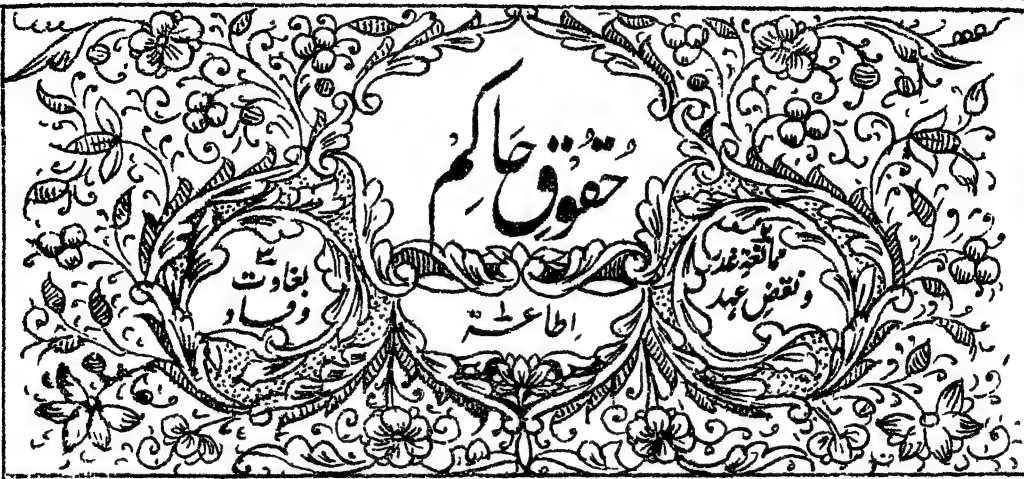 حُقُوقِ حَاکِمُ
اطاعۃ
ممانعۃِ غدر
و نقضِ عہد
بغاوت
و فساد